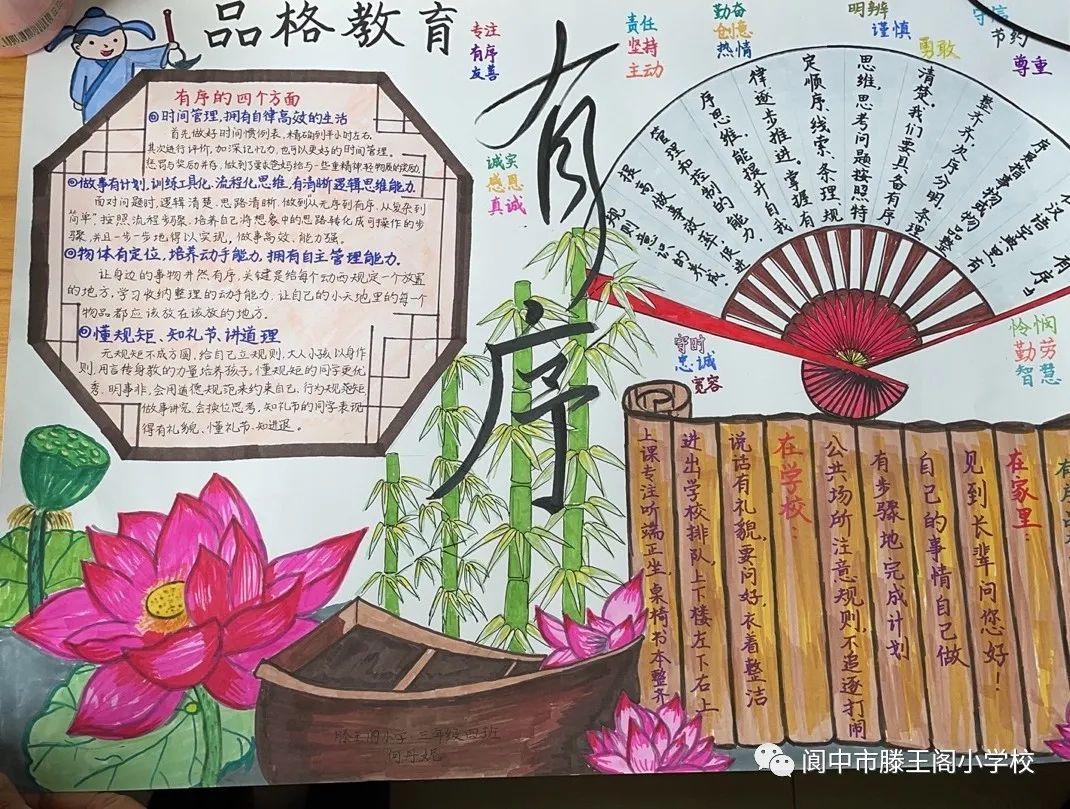 品格教育
专注
有序
友善
责任
坚持
主动
勤奋
创意
热情
明辨
谨慎
勇敢
守信
节约
尊重
有序
诚实
感恩
真诚
有序的四个方面
①时间管理,拥有自律高效的生活
首先做好时间惯例表,精确到半小时左右,
其次进行评价,加深记忆力,也可以更好的时间管理。
②做事有计划,训练工具化、流程化思维,有清晰逻辑思维能力
面对问题时,逻辑清楚、思路清晰,做到从无序到有序,从复杂到
简单"按照流程步骤,培养自己将想象中的思路转化成可操作的步
骤,并且一步一步地得以实现,做事高效、能力强。
③物体有定位,培养动手能力,拥有自主管理能力.
让身边的事物井然有序,关键是给每个动西规定一个放置
的地方,学习收纳整理的动手能力,让自己的小天地里的每一个
物品都应该放在该放的地方.
④懂规矩、知礼节、讲道理
无规矩不成方圆,给自己立规则,大人小孩以身作
则,用言传身教的力量培养孩子,懂规矩的同学更优
秀.明事非,会用道德规范来约束自己,行为规范矩
做事讲究,会换位思考,知礼节的同学表现
得有礼貌、懂礼节、知进退。
有序
汉语字典里,有
序是指事物或物品整
整齐齐,次序分明,条理
清楚,我们要具备有序
思维,思考问题按照特
定顺序、线索、条理、规
律逐步推进。掌握有
序思维,能提升自我
管理和控制的能力,
提高做事效率,促进
规则意识的养成.
守时
忠诚
宽容
怜悯
勤劳
智慧
在家里:
见到长辈问您好!
自己的事情自己做
有步骤地完成计划
公共场所注意规则,不追逐打闹
在学校:
说话有礼貌,要问好,衣着整洁
进出学校排队,上下楼左下右上
上课专注听端正坐,桌椅书本整齐
滕王阁小学·三年级四班
阆中市滕王阁小学校